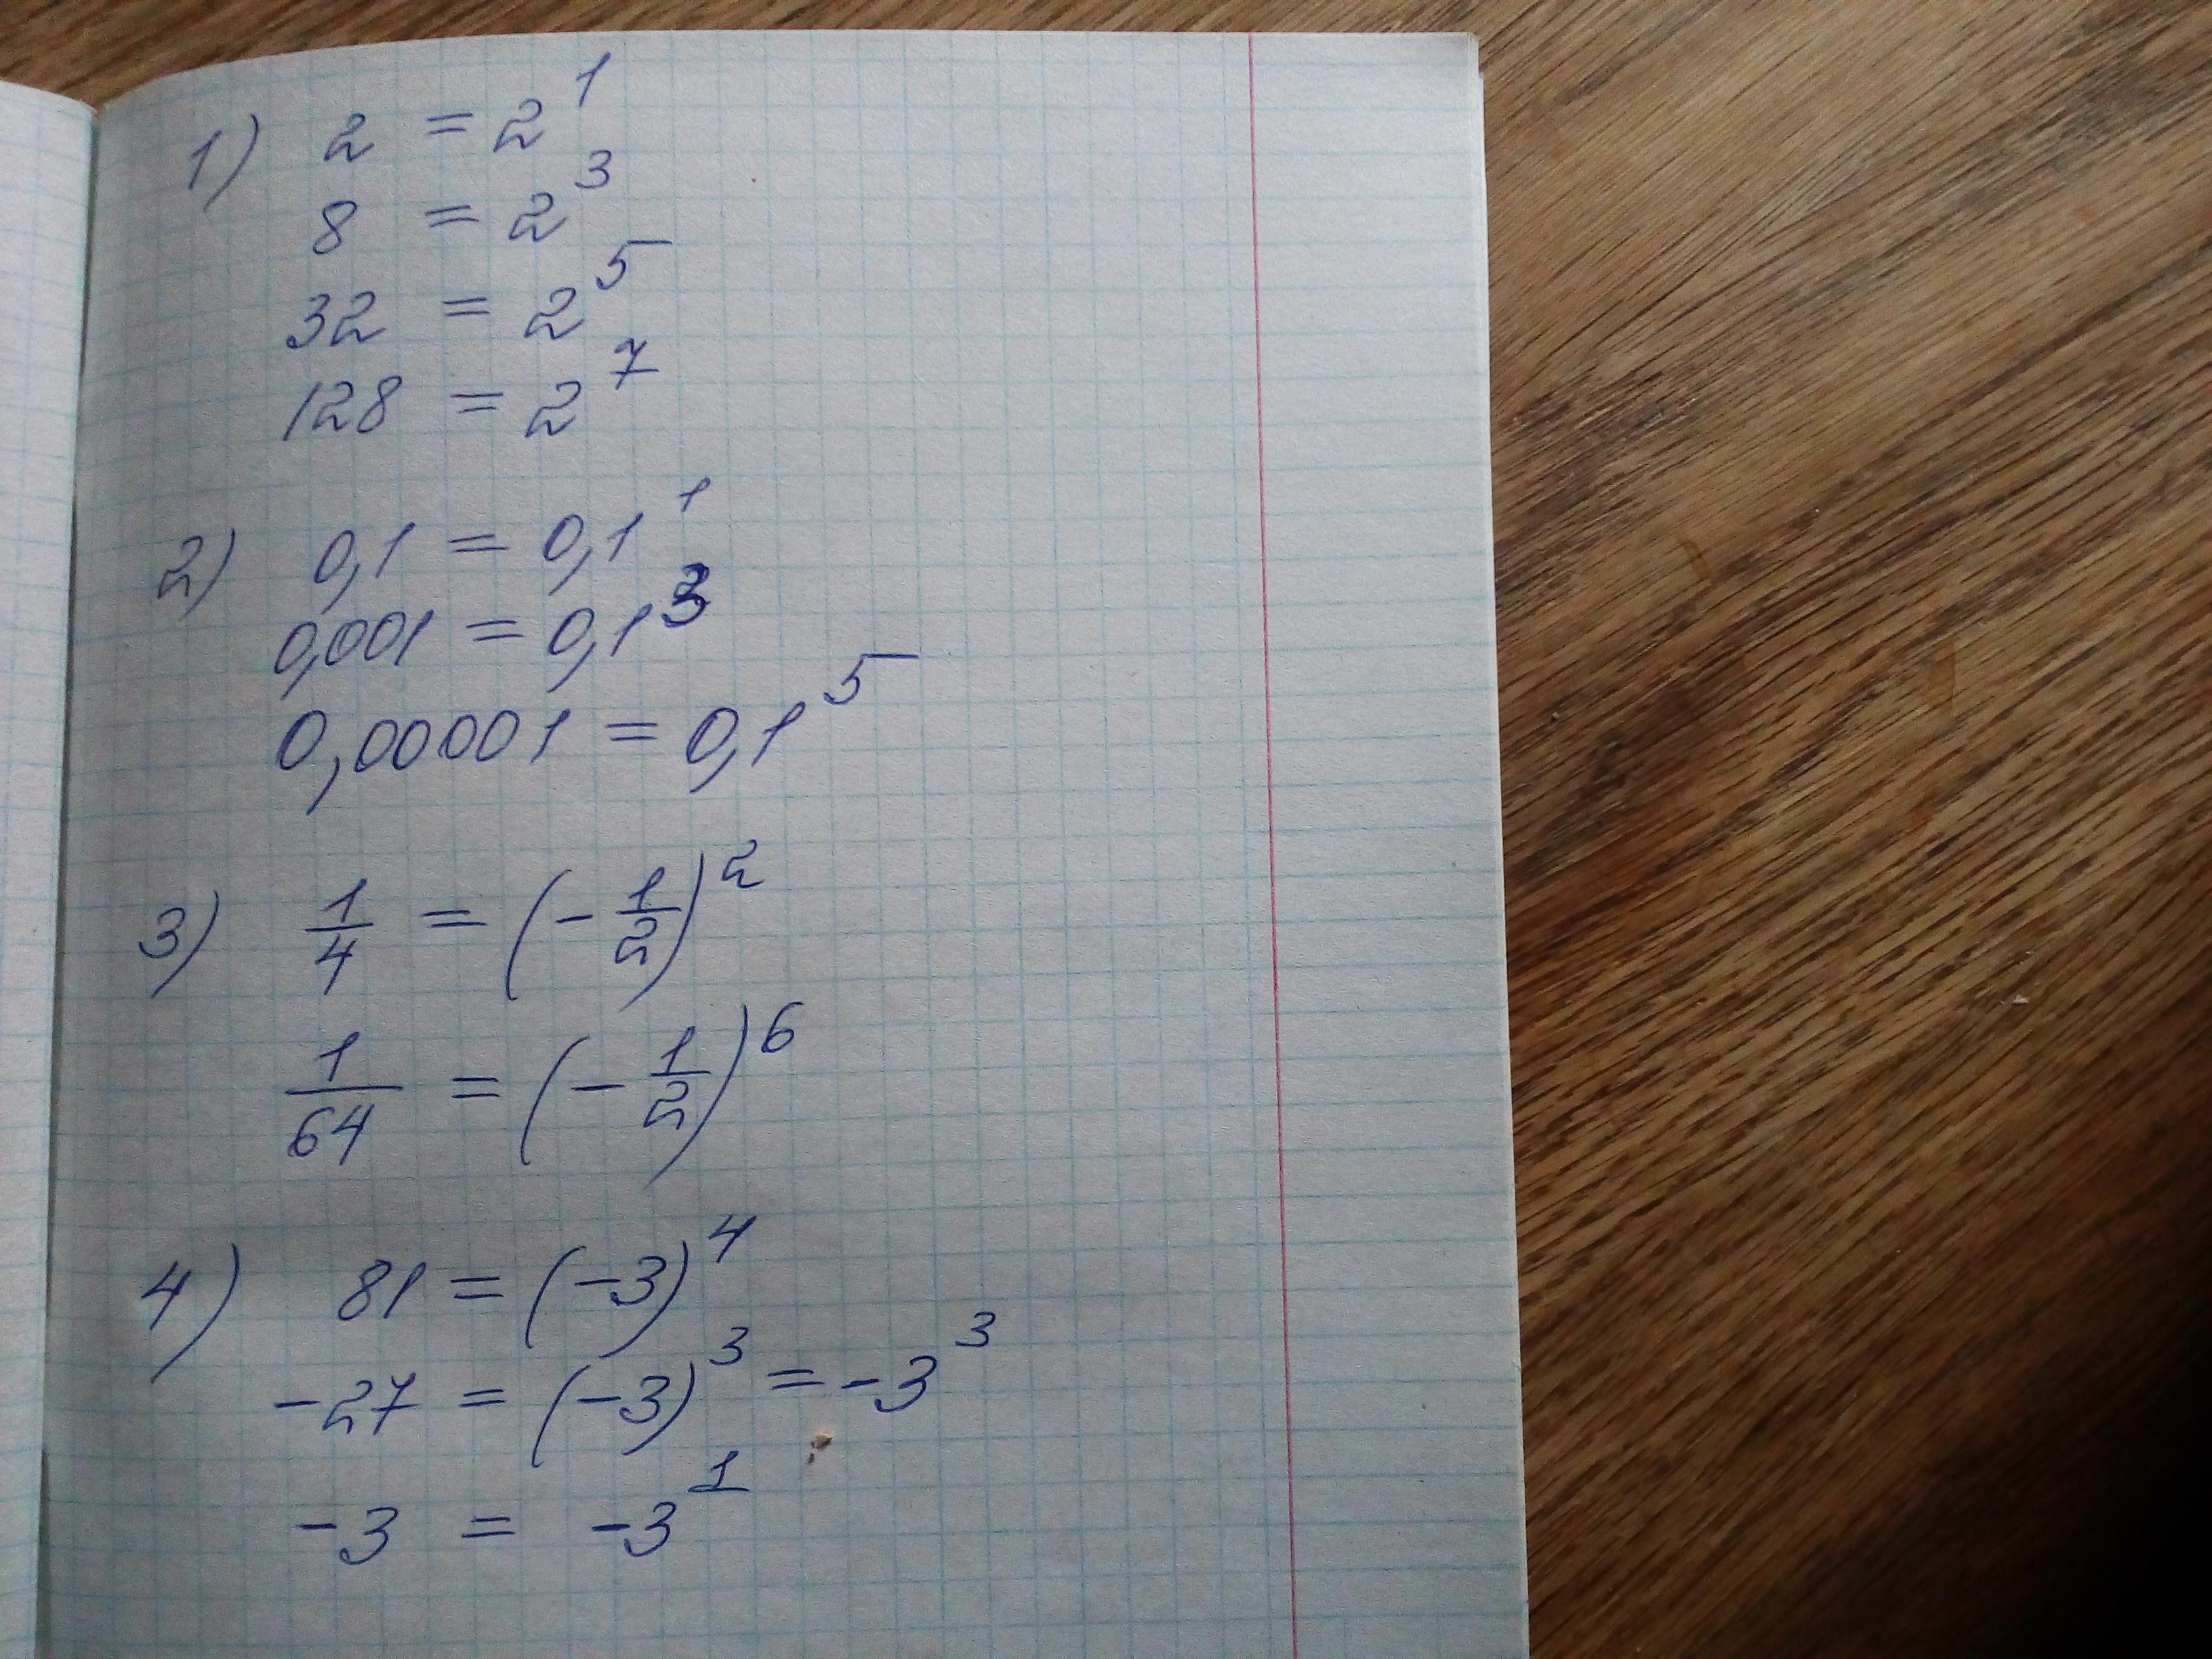 1) 2 = 2¹
8 = 2³
32 = 2⁵
128 = 2⁷
2) 0,1 = 0,1¹
0,001 = 0,1³
0,00001 = 0,1⁵
3) 1/4 = (-1/2)²
1/64 = (-1/2)⁶
4) 81 = (-3)⁴
-27 = (-3)³ = -3³
-3 = -3¹